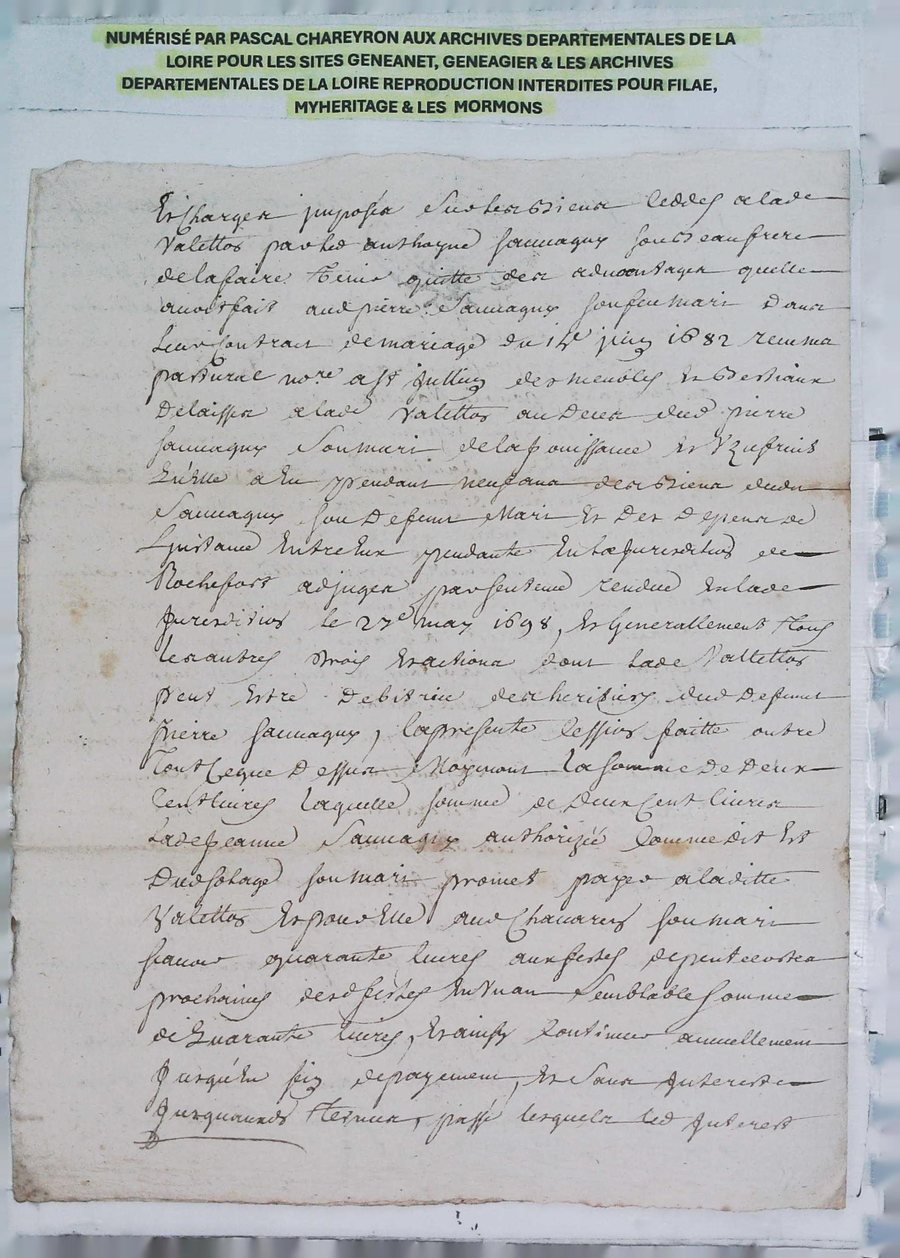 NUMÉRISÉ PAR PASCAL CHAREYRON AUX ARCHIVES DEPARTEMENTALES DE LA
LOIRE POUR LES SITES GENEANET, GENEAGIER & LES ARCHIVES
DEPARTEMENTALES DE LA LOIRE REPRODUCTION INTERDITES POUR FILAE,
MYHERITAGE & LES MORMONS
Et charges imposés sur les biens ceddés a lade
Valettos par led anthoyne sauuagny son beau frere
de la faire tenir quitte des aduantages quelle
auoit fait aud pierre Sauuagny son feu mari dans
leur contrart de mariage du 14e juin 1682 receu me
pasturel nore a st jullin des meubles et bestiaux
delaissés a lade Valettos au deces dud pierre
sauuagny son mari de la jouissance et Uzufruit
qu'elle a eu pendant neuf ans des biens dudt
Sauuagny son defunt Mari et des depens de
Linstance entre eux pendante en la jurisdition de
Rochefort adjugés par sentence rendue en lade
jurisdition le 27e may 1698, et generallement tous
les autres droits et actions dont lade Vallettos
peut estre debitrice des heritiers dud defunt
pierre sauuagny, la presente cession faitte outre
tout ce que dessus Moyenant la somme de deux
cent liures laquelle somme de deux cent liures
lade jeanne Sauuagny authorizée comme dit est
dud son mari promet payer a laditte
Valettos et pour elle aud Chauaren son mari
scauoir quarante liures aux festes de pentecostes
prochaines desd festes en Un an semblable somme
de quarante liures, et ainsy continuer annuellement
jusqu'en fin de payement, et sans interests
jusquausd termes, passé lesquels led interest